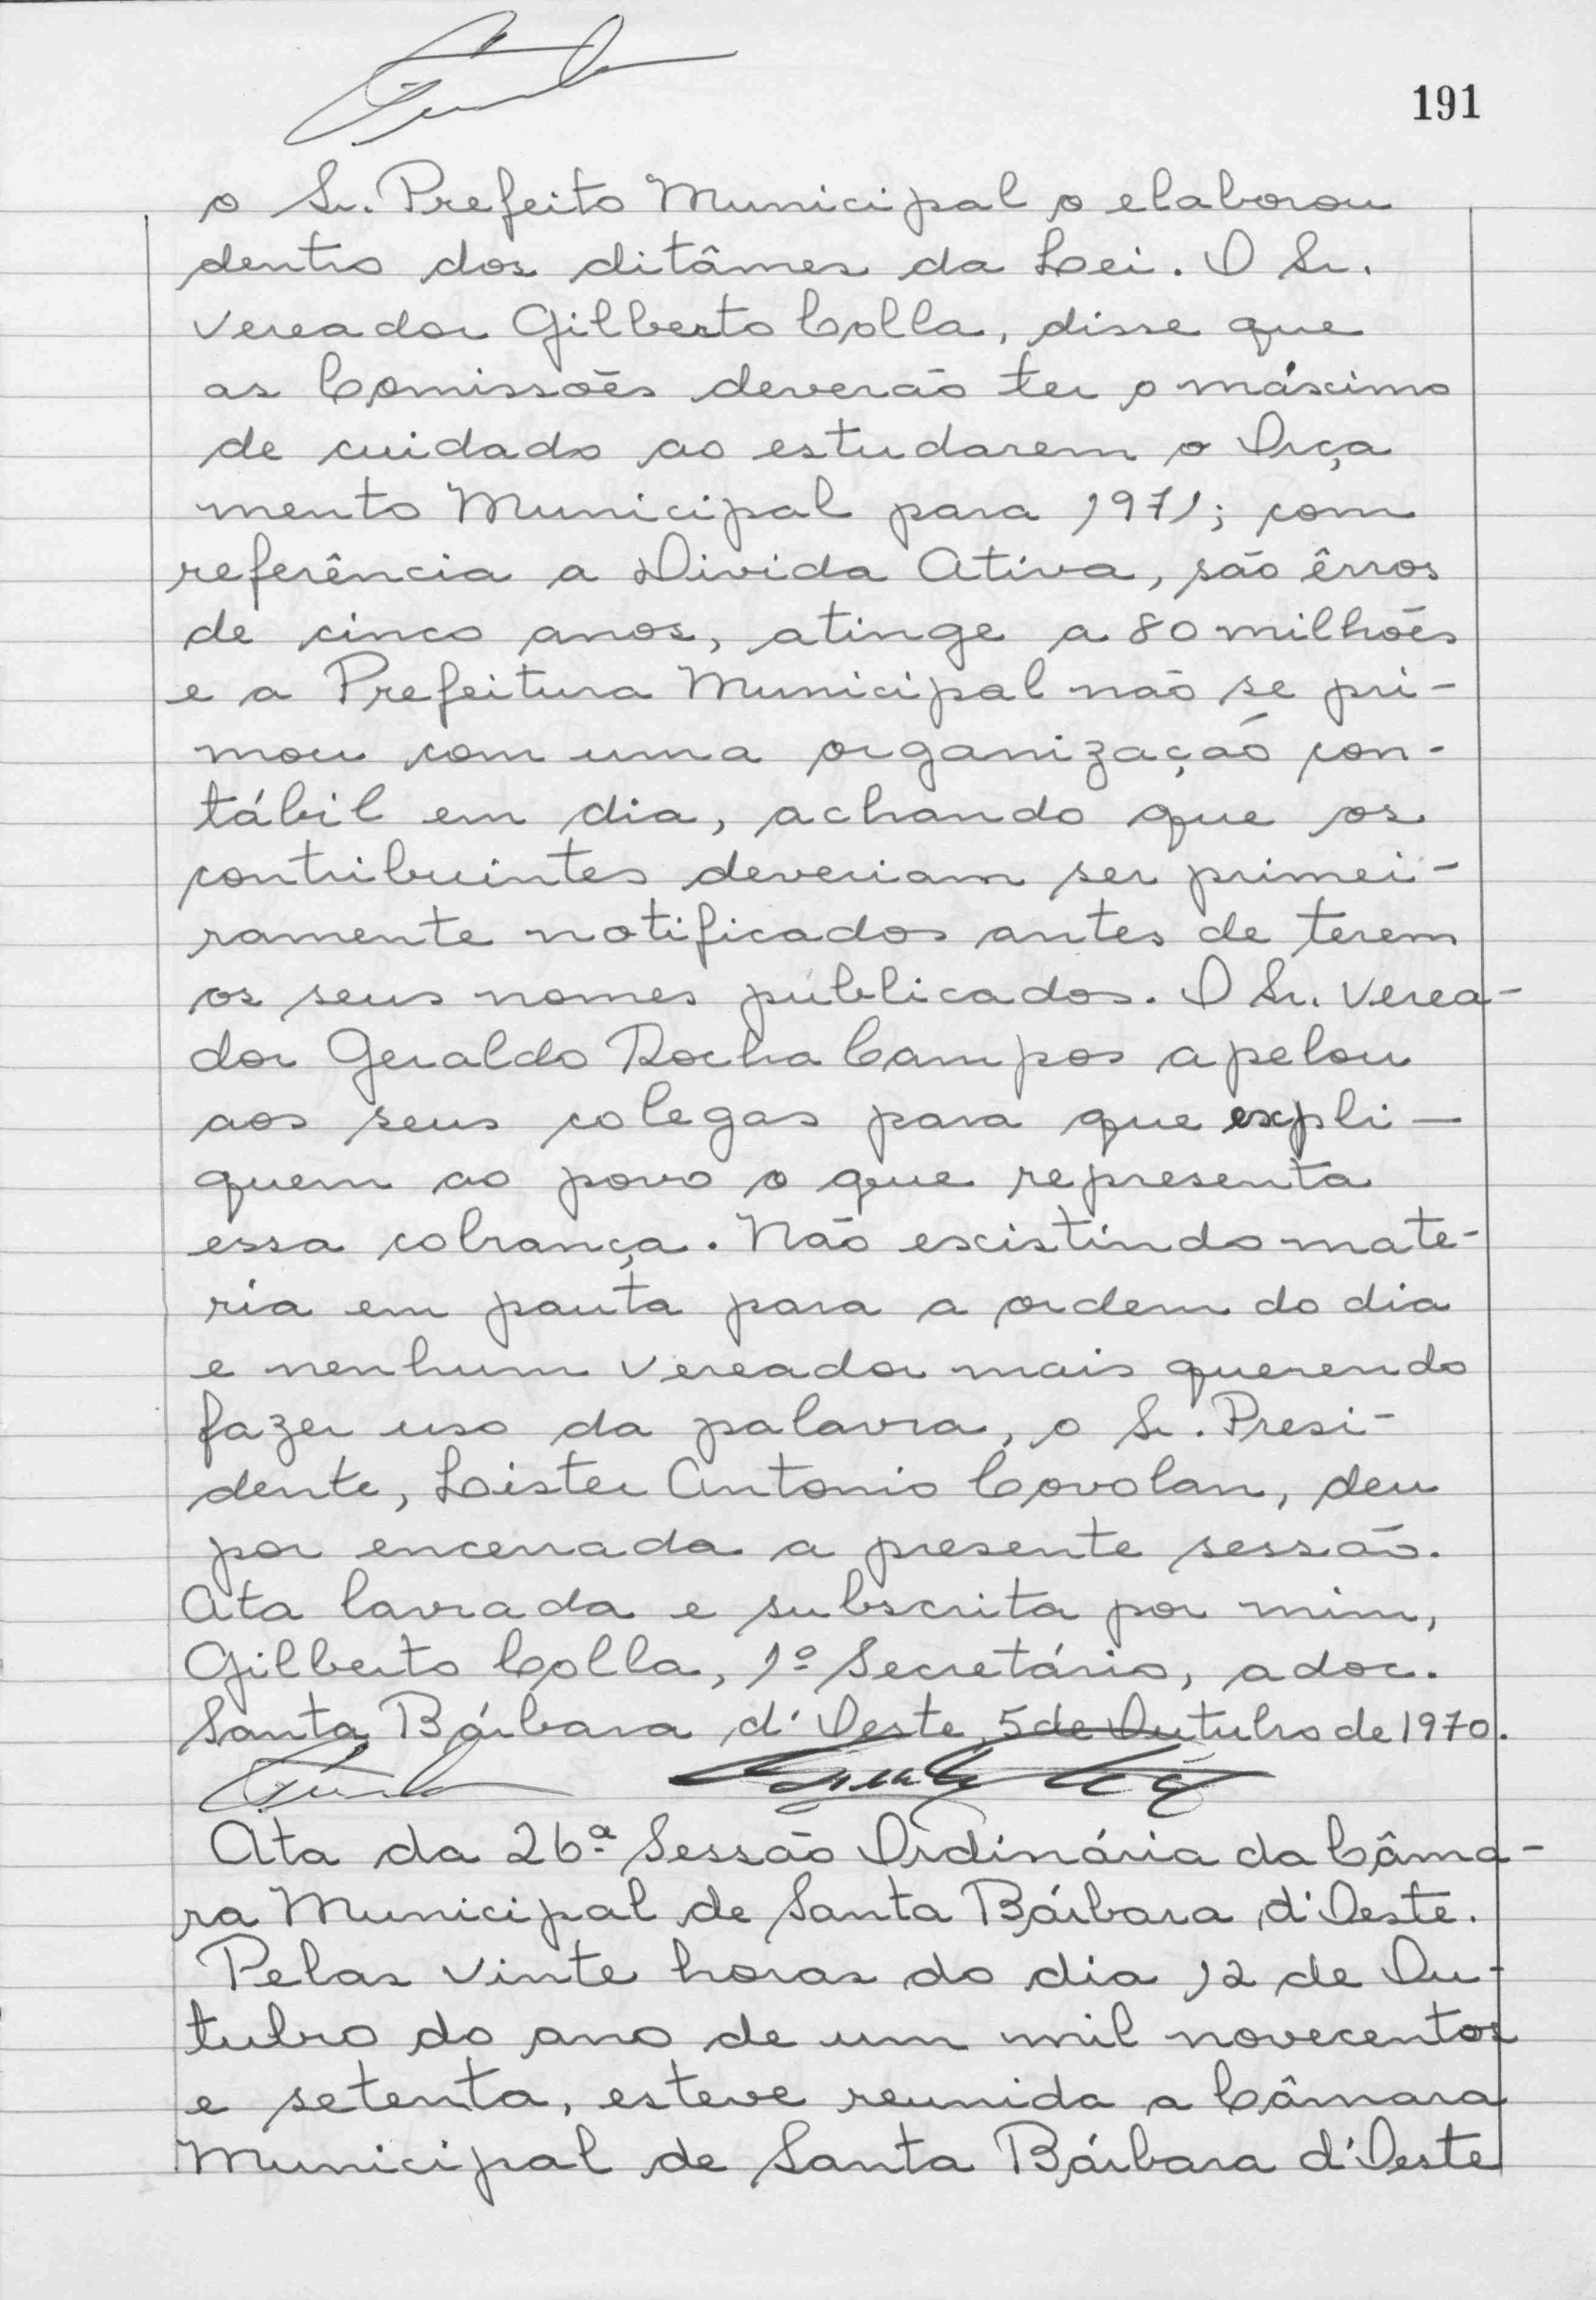 191
o Sr. Prefeito Municipal o elaborou
dentro dos ditâmes da Lei. O Sr.
Vereador Gilberto Colla, disse que
as Comissões deverão ter o máximo
de cuidado ao estudarem o Orça
mento Municipal para 1971; com
referência a Divida Ativa, são êrros
de cinco anos, atinge a 80 milhões
e a Prefeitura Municipal não se pri-
mou com uma organização con-
tábil em dia, achando que os
contribuintes deveriam ser primei-
ramente notificados antes de terem
os seus nomes públicados. O Sr. Verea-
dor Geraldo Rocha Campos apelou
aos seus colegas para que expli-
quem ao povo o que representa
essa cobrança. Não existindo mate-
ria em pauta para a ordem do dia
e nenhum vereador mais querendo
fazer uso da palavra, o Sr. Presi-
dente, Lister Antonio Covolan, deu
por encerrada a presente sessão.
Ata lavrada e subscrita por mim,
Gilberto Colla, 1º Secretário, adoc.
Santa Bárbara d'Oeste, 5 de Outubro de 1970.
Ata da 26ª Sessão Ordinária da Câma-
ra Municipal de Santa Bárbara d'Oeste.
Pelas vinte horas do dia 12 de Ou-
tubro do ano de um mil novecentos
e setenta, esteve reunida a Câmara
Municipal de Santa Bárbara d'Oeste